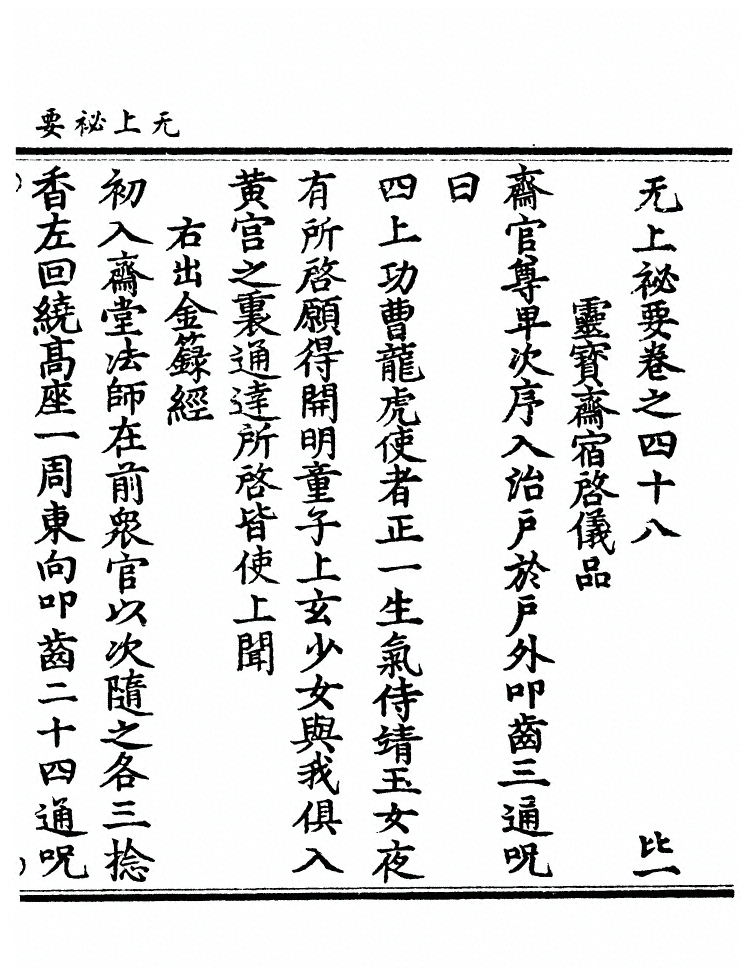 无上祕要
无上祕要卷之四十八 比一
靈寶齋宿啓儀品
齋官尊卑次序入治戶於戶外叩齒三通呪
曰
四上功曹龍虎使者正一生氣侍靖玉女夜
有所啓願得開明童子上玄少女與我俱入
黃宮之裏通達所啓皆使上聞
右出金籙經
初入齋堂法師在前衆官以次隨之各三捻
香左回繞高座一周東向叩齒二十四通呪